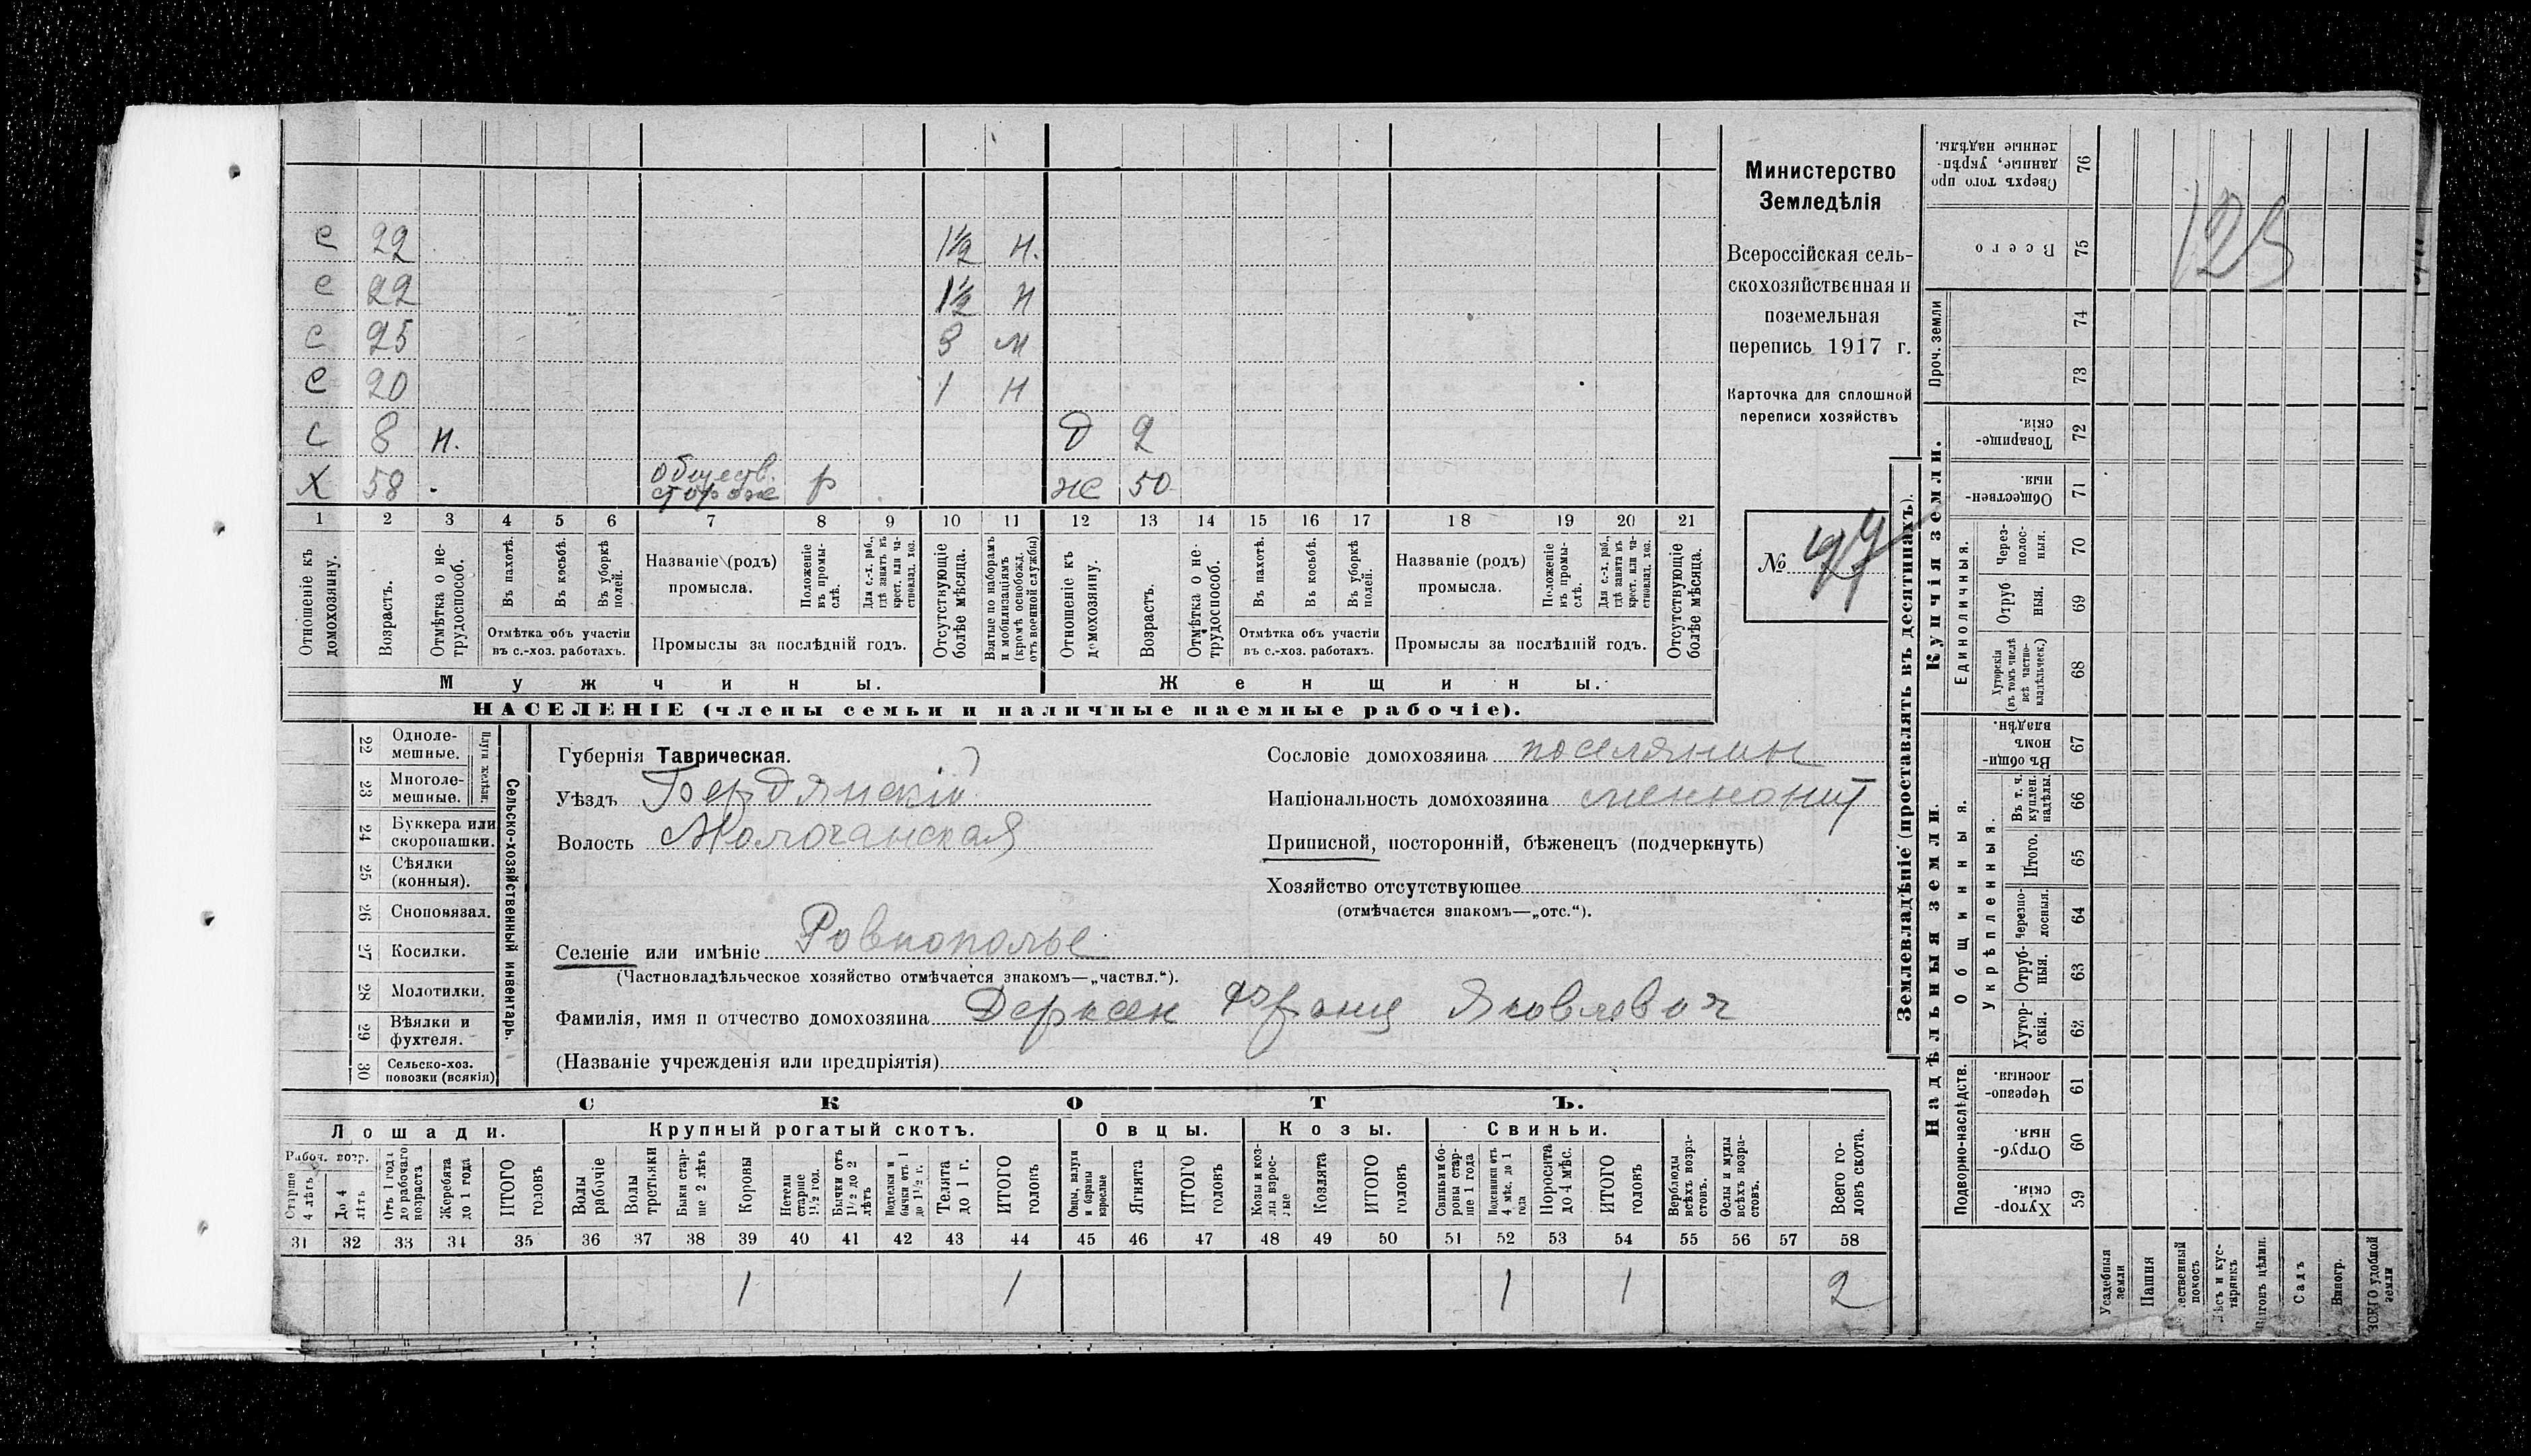 С 22 1½ Н.
С 22 1½ Н
С 25 3 М
С 20 1 Н
С 8 н. д 2
Х 58 Обществ. стороже р же 50
1 2 3 4 5 6 7 8 9 10 11 12 13 14 15 16 17 18 19 20 21
Отношеніе къ домохозяину.
Возрастъ.
Отмѣтка о не-трудоспособ.
Въ пахотѣ.
Въ косьбѣ.
Въ уборкѣ полей.
Отмѣтка объ участіи въ с.-хоз. работахъ.
Названіе (родъ) промысла.
Положеніе въ промы-слѣ.
Для с.-х. раб., гдѣ занятъ въ крест. или ча-стновлад. хоз.
Промыслы за послѣдній годъ.
Отсутствующіе болѣе мѣсяца.
Взятые по наборамъ и мобилизаціямъ (кромѣ освобожд. отъ военной службы)
Отношеніе къ домохозяину.
Возрастъ.
Отмѣтка о не-трудоспособ.
Въ пахотѣ.
Въ косьбѣ.
Въ уборкѣ полей.
Отмѣтка объ участіи въ с.-хоз. работахъ.
Названіе (родъ) промысла.
Положеніе въ промы-слѣ.
Для с.-х. раб., гдѣ занята въ крест. или ча-стновлад. хоз.
Промыслы за послѣдній годъ.
Отсутствующіе болѣе мѣсяца.
Мужчины. Женщины.
НАСЕЛЕНІЕ (члены семьи и наличные наемные рабочіе).
Министерство
Земледѣлія
Всероссійская сель-
скохозяйственная и
поземельная
перепись 1917 г.
Карточка для сплошной
переписи хозяйствъ
№
22 Одноле-мешные.
23 Многоле-мешные.
Плуги желѣзн.
24 Буккера или скоропашки.
25 Сѣялки (конныя).
26 Сноповязал.
27 Косилки.
28 Молотилки.
29 Вѣялки и фухтеля.
30 Сельско-хоз. повозки (всякія)
Сельско-хозяйственный инвентарь.
Губернія Таврическая.
Уѣздъ Бердянскій
Волость Молочанская
Селеніе или имѣніе Ровнополье
(Частновладѣльческое хозяйство отмѣчается знакомъ—„частвл.“).
Фамилія, имя и отчество домохозяина Дерксен Франц Яковлевич
(Названіе учрежденія или предпріятія)
Сословіе домохозяина поселянин
Національность домохозяина меннонит
Приписной, посторонній, бѣженецъ (подчеркнуть)
Хозяйство отсутствующее
(отмѣчается знакомъ—„отс.“).
СКОТЪ.
Лошади. Крупный рогатый скотъ. Овцы. Козы. Свиньи.
Рабоч. возр.
Старше 4 лѣтъ
До 4 лѣтъ
Отъ 1 года до рабочаго возраста
Жеребята до 1 года
ИТОГО головъ
Волы рабочіе
Волы третьяки
Быки стар-ше 2 лѣтъ
Коровы
Нетели старше 1½ год.
Бычки отъ 1½ до 2 лѣтъ
Подтелки и бычки отъ 1 до 1½ г.
Телята до 1 г.
ИТОГО головъ
Овцы, валухи и бараны взрослые
Ягнята
ИТОГО головъ
Козы и коз-лы взрос-лые
Козлята
ИТОГО головъ
Свиньи бо-ровы стар-ше 1 года
Подсвинки отъ 4 мѣс. до 1 года
Поросята до 4 мѣс.
ИТОГО головъ
Верблюды всѣхъ возра-стовъ.
Ослы и мулы всѣхъ возра-стовъ.
Всего го-ловъ скота.
31 32 33 34 35 36 37 38 39 40 41 42 43 44 45 46 47 48 49 50 51 52 53 54 55 56 57 58
1 1 1 1 2
125
Землевладѣніе (проставлять въ десятинахъ).
Надѣльныя земли. Купчія земли. Проч. земли
Подворно-наслѣдств.
Общинныя.
Укрѣпленныя.
Единоличныя.
76 Сверхъ того про данные, укрѣп-ленные надѣлы.
75 Всего
74
73
72 Товарище-скія.
71 Обществен-ныя.
70 Через-полос-ныя.
69 Отруб ныя.
68 Хуторскія (въ томъ числѣ всѣ частно-владѣльческ.)
67 Въ общи-номъ владѣн.
66 Въ т. ч. куплен. надѣлы.
65 Итого.
64 Черезпо-лосныя.
63 Отруб-ныя.
62 Хутор-скія.
61 Черезпо-лосныя.
60 Отруб-ныя.
59 Хутор-скія.
Усадебныя земли
Пашня
Садъ
Виногр.